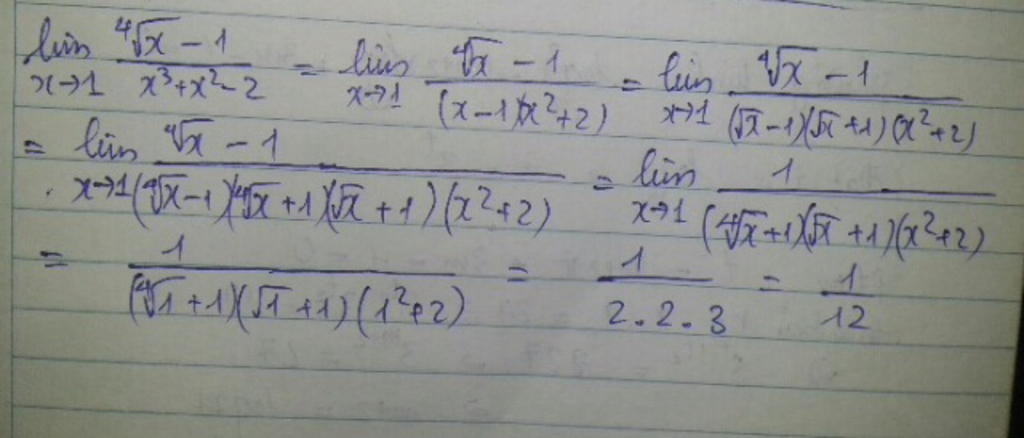 lim x→1 (∜x − 1)/(x³+x²−2) = lim x→1 (∜x − 1)/((x−1)(x²+2)) = lim x→1 (∜x − 1)/((√x−1)(√x+1)(x²+2))
= lim x→1 (∜x − 1)/((∜x−1)(∜x+1)(√x+1)(x²+2)) = lim x→1 1/((∜x+1)(√x+1)(x²+2))
= 1/((∜1+1)(√1+1)(1²+2)) = 1/(2.2.3) = 1/12